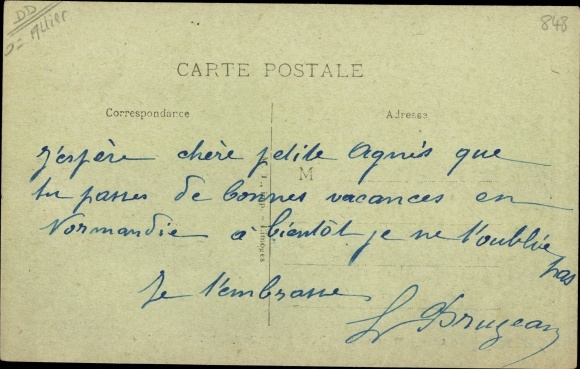 DD
D = Allier
848
CARTE POSTALE
Correspondance
Adresse
M
j'espère chère petite Agnès que
tu passes de bonnes vacances en
Normandie a bientôt je ne t'oublie
pas
Je t'embrasse
Limoges